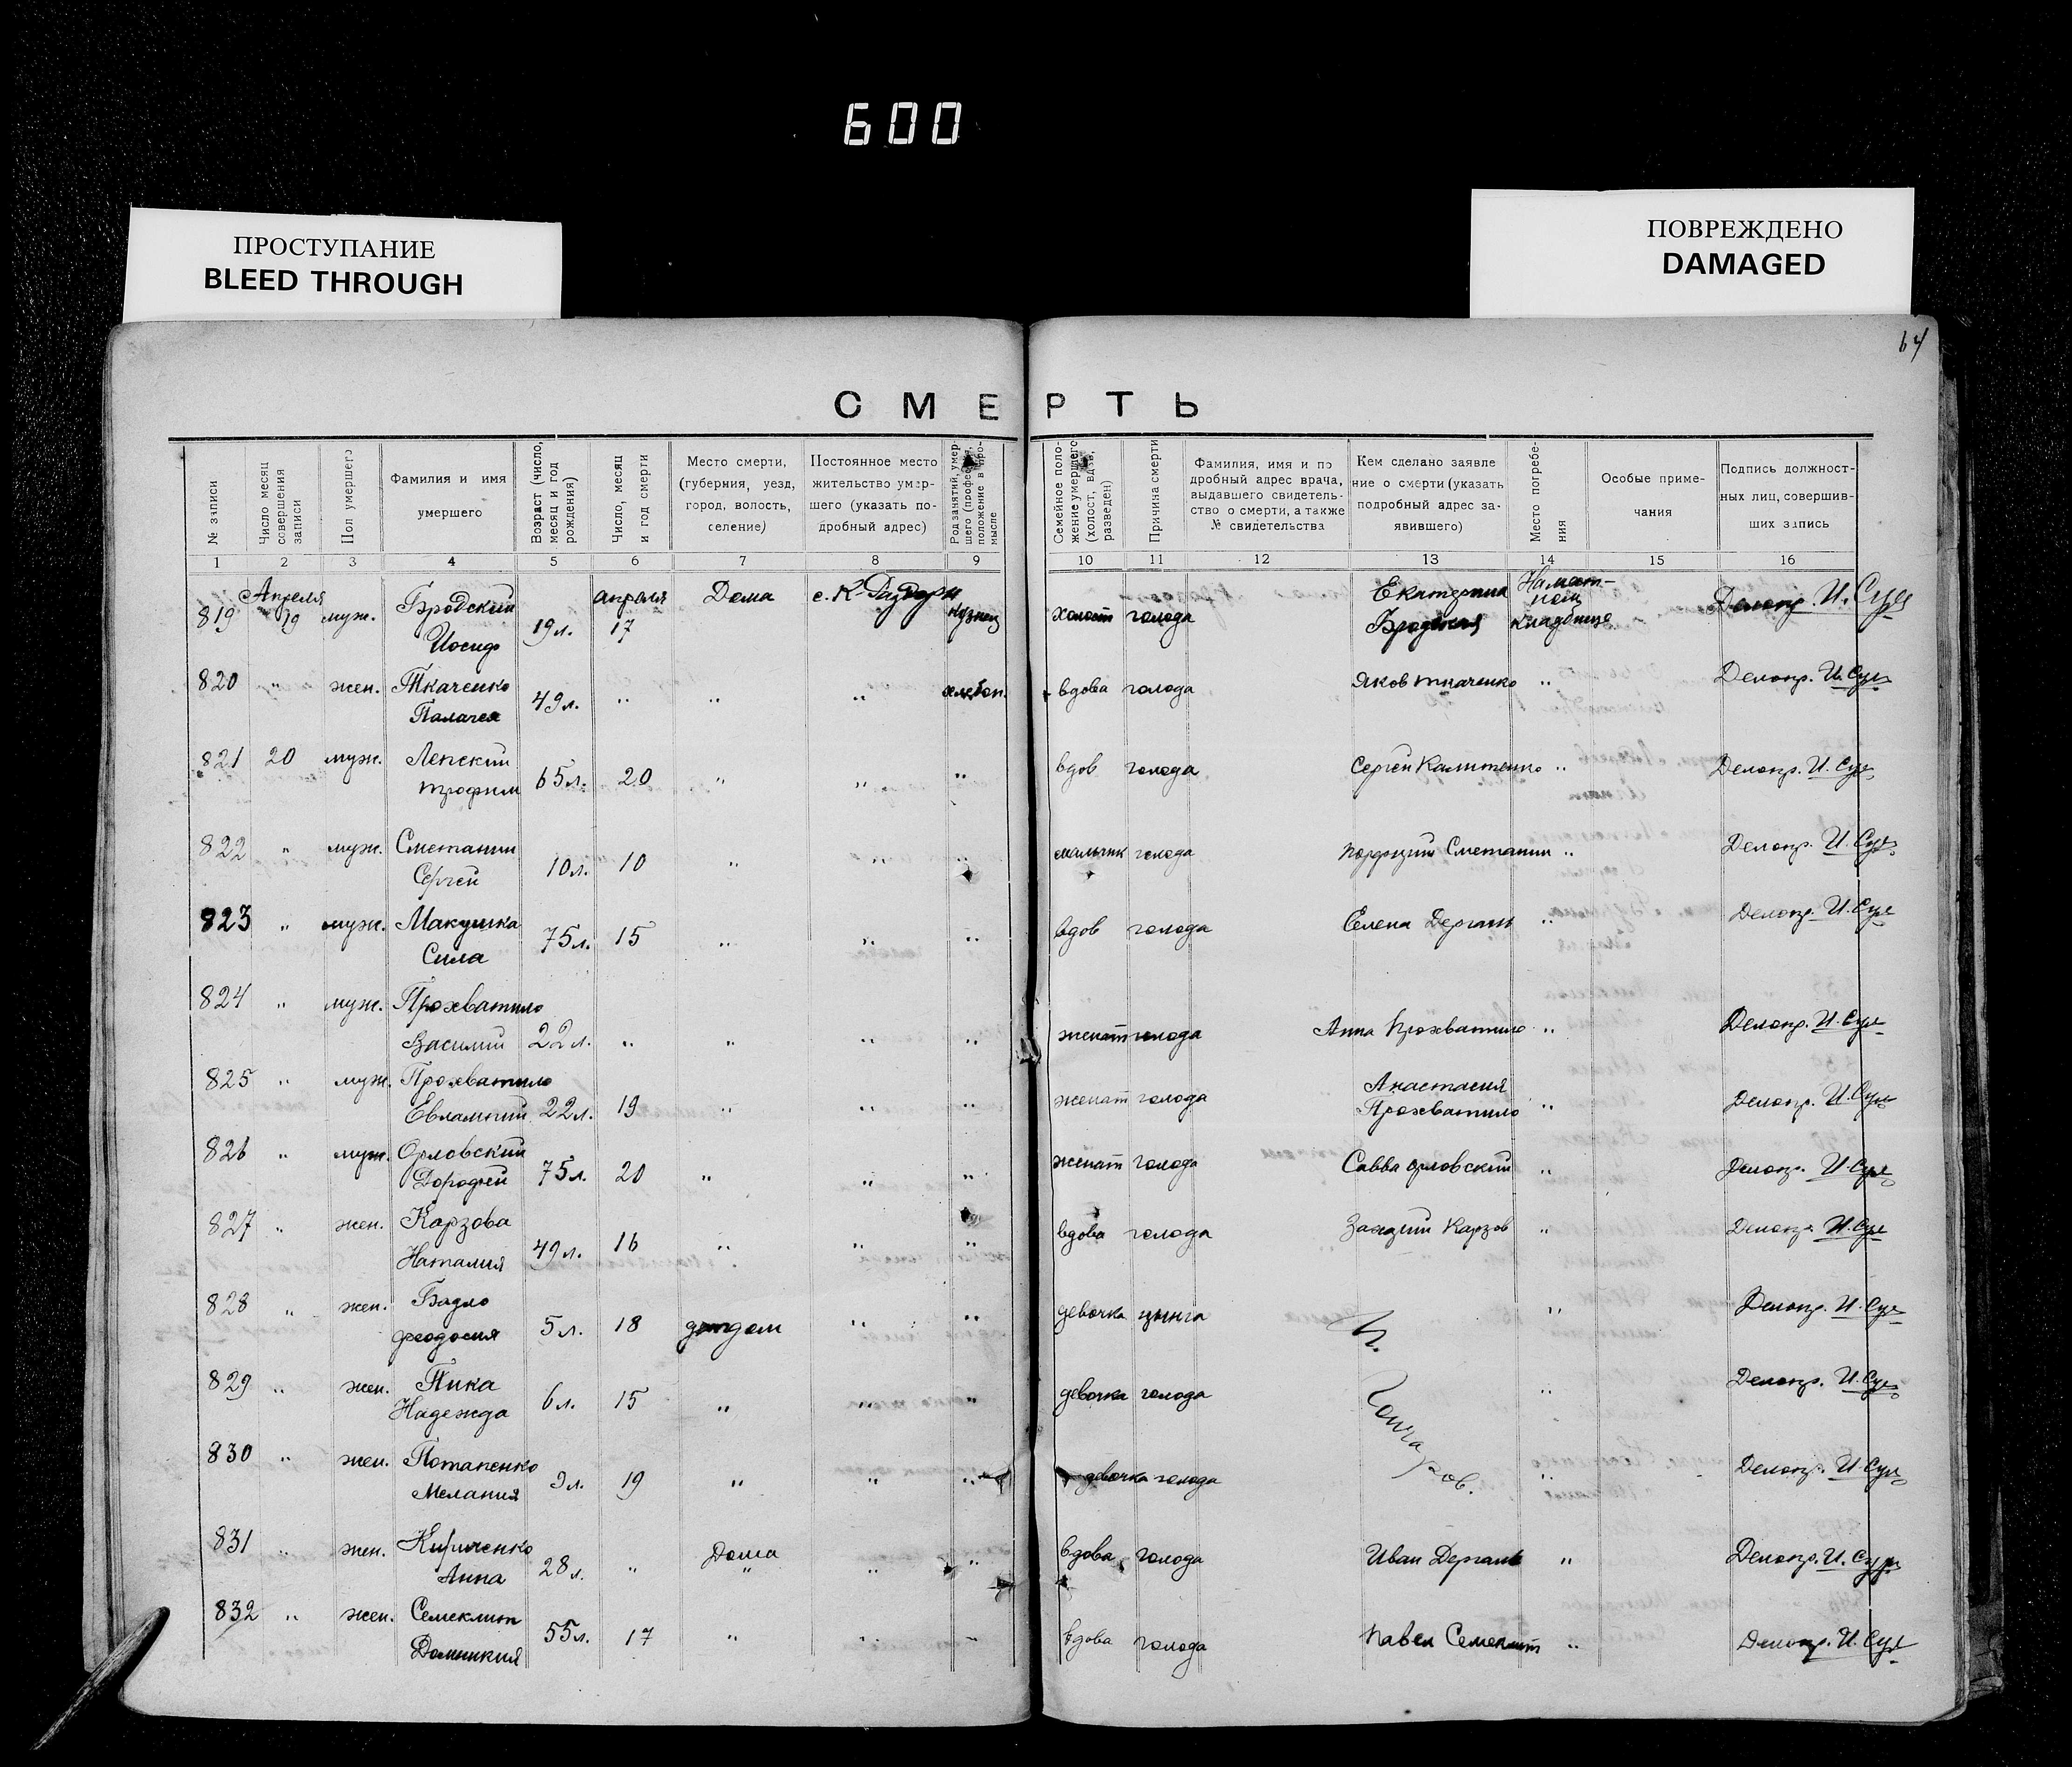 600
ПРОСТУПАНИЕ
BLEED THROUGH
ПОВРЕЖДЕНО
DAMAGED
64
СМЕРТЬ
№ записи
Число месяц совершения записи
Пол умершего
Фамилия и имя умершего
Возраст (число, месяц и год рождения)
Число, месяц и год смерти
Место смерти, (губерния, уезд, город, волость, селение)
Постоянное место жительство умершего (указать подробный адрес)
Род занятий, умершего (профессия, положение в промысле
Семейное положение умершего (холост, вдов, разведен)
Причина смерти
Фамилия, имя и подробный адрес врача, выдавшего свидетельство о смерти, а также № свидетельства
Кем сделано заявление о смерти (указать подробный адрес заявившего)
Место погребения
Особые примечания
Подпись должностных лиц, совершивших запись
1 2 3 4 5 6 7 8 9 10 11 12 13 14 15 16
819 Апреля 19 муж. Бродский Иосиф 19 л. апреля 17 Дома с. К. кузнец холост голода Екатерина Бродская кладбище Делопр. И. Сул
820 " жен. Ткаченко Палагея 49 л. " " " хлебоп. вдова голода Яков Ткаченко " Делопр. И. Сул
821 20 муж. Лепский Трофим 65 л. 20 " " " вдов голода Сергей " Делопр. И. Сул
822 " муж. Сметанин Сергей 10 л. 10 " " " мальчик голода Порфирий Сметанин " Делопр. И. Сул
823 " муж. Макушка Сила 75 л. 15 " " " вдов голода Елена Дергаль " Делопр. И. Сул
824 " муж. Прохватило Василий 22 л. " " " " женат голода Анна Прохватило " Делопр. И. Сул
825 " муж. Прохватило Евлампий 22 л. 19 " " " женат голода Анастасия Прохватило " Делопр. И. Сул
826 " муж. Орловский Дорофей 75 л. 20 " " " женат голода Савва Орловский " Делопр. И. Сул
827 " жен. Карзова Наталия 49 л. 16 " " " вдова голода Карзов " Делопр. И. Сул
828 " жен. Бадло Феодосия 5 л. 18 детдом " " девочка цынга " Делопр. И. Сул
829 " жен. Пика Надежда 6 л. 15 " " девочка голода " Делопр. И. Сул
830 " жен. Потапенко Мелания 9 л. 19 " " " девочка голода " Делопр. И. Сул
831 " жен. Кириченко Анна 28 л. " Дома " " " вдова голода Иван Дергаль " Делопр. И. Сул
832 " жен. Семеклит Домникия 55 л. 17 " " " вдова голода Павел Семеклит " Делопр. И. Сул